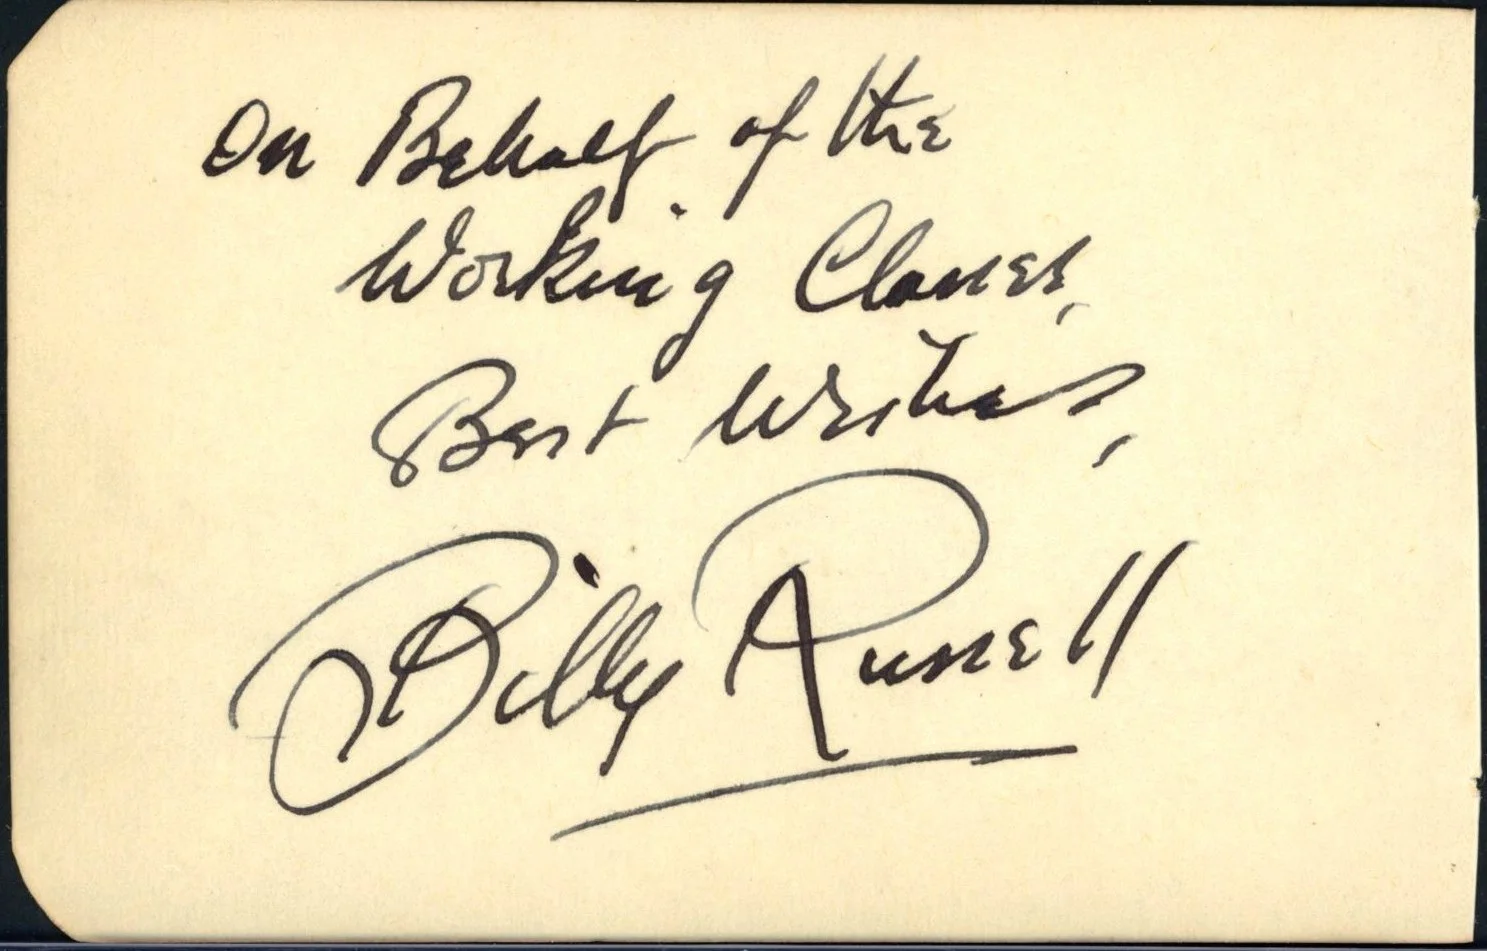 On Behalf of the
Working Classes,
Best Wishes,
Billy Russell